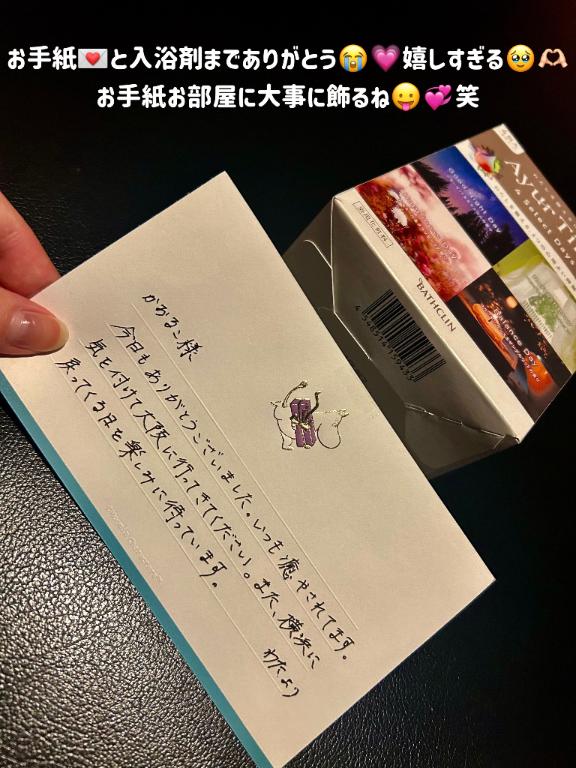 お手紙💌と入浴剤までありがとう😭💗嬉しすぎる🥹🫶🏻
お手紙お部屋に大事に飾るね😛💞笑
かおるこ様
今日もありがとうございました。いつも癒やされてます。
気を付けて大阪に行ってきてください。また、横浜に
戻ってくる日を楽しみに待っています。
わたより
Good Night Day
Balance Day
BATHCLIN
4 548514 159433